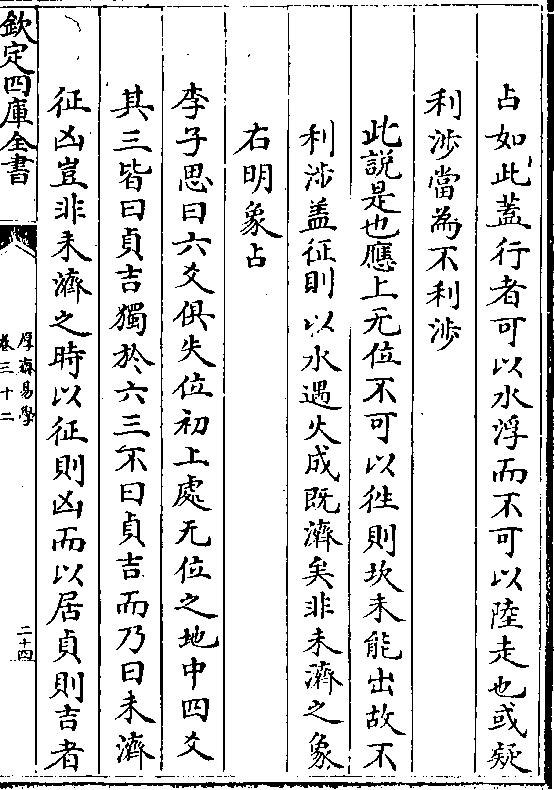 占如此蓋行者可以水浮而不可以陸走也或疑
利涉當為不利涉
此說是也應上无位不可以徃則坎未能出故不
利涉蓋征則以水遇火成既濟矣非未濟之象
右明象占
李子思曰六爻俱失位初上處无位之地中四爻
其三皆曰貞吉獨於六三不曰貞吉而乃曰未濟
征凶豈非未濟之時以征則凶而以居貞則吉者
欽定四庫全書
厚齋易學
卷三十二
二十四